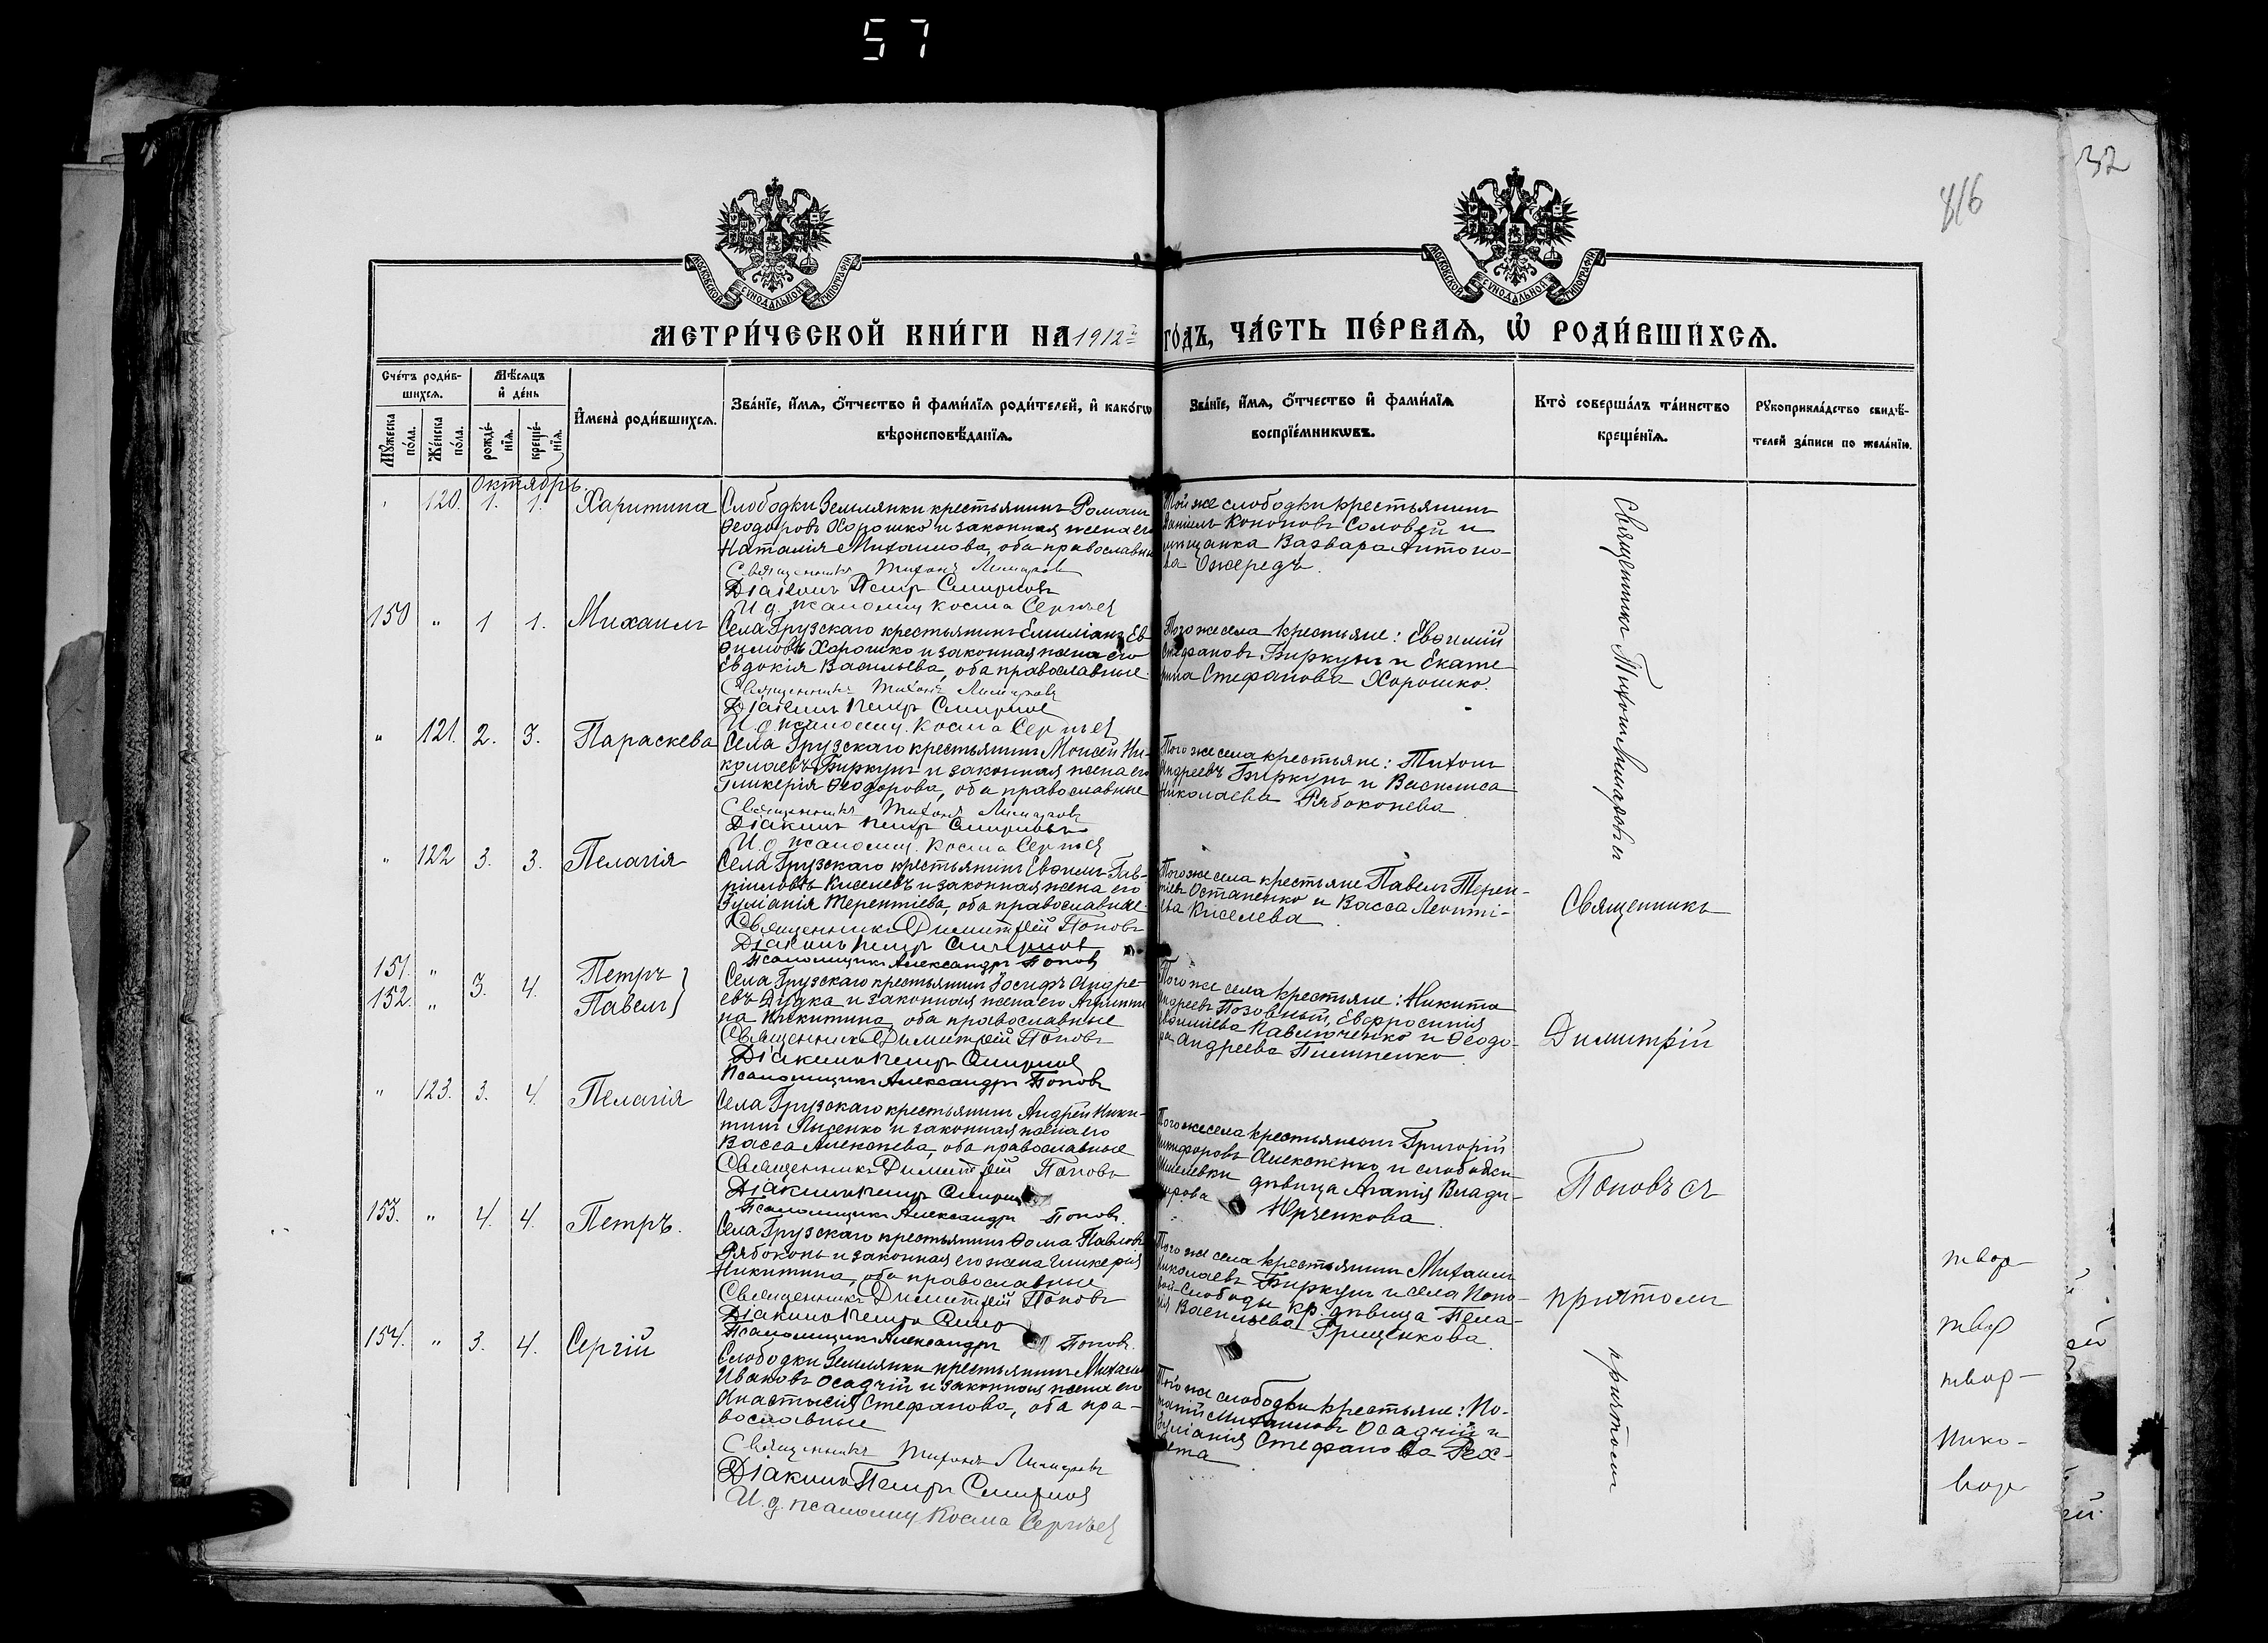 57
32
816
МОСКОВСКОЙ СѴНОДАЛЬНОЙ ТИПОГРАФІИ
МОСКОВСКОЙ СѴНОДАЛЬНОЙ ТИПОГРАФІИ
МЕТРИ́ЧЕСКОЙ КНИ́ГИ НА 1912 й ГО́ДЪ, ЧА́СТЬ ПЕ́РВАѦ, Ѡ҆ РОДИ́ВШИХСѦ.
Сче́тъ роди́в-
шихсѧ.
Мѣ́сѧцъ
и҆ де́нь
Мꙋ́жеска по́ла.
Же́нска по́ла.
рожде́-
нїѧ.
креще́-
нїѧ.
И҆мена̀ роди́вшихсѧ.
Зва́нїе, и҆́мѧ, ѻ҆́тчество и҆ фами́лїѧ роди́телей, и҆ како́гѡ
вѣроисповѣ́данїѧ.
Зва́нїе, и҆́мѧ, ѻ҆́тчество и҆ фами́лїѧ
воспрїе́мникѡвъ.
Кто̀ соверша́лъ та́инство
креще́нїѧ.
Рꙋкоприкла́дство свидѣ́-
телей за́писи по жела́нїю.
Октябрь.
120. 1. 1. Харитина
Слободки Землянки крестьянинъ Романъ
Ѳеодоровъ Хорошко и законная жена его
Наталія Михаилова, оба православные
Священникъ Тихонъ
Діаконъ Петръ Смирновъ
И. д. псаломщ Косма Сергѣев
Той же слободки крестьянинъ
Даніилъ Кононовъ Соловей и
мѣщанка Варвара Антоно-
ва Ожередъ.
150 " 1 1. Михаилъ
Села Грузскаго крестьянинъ Емиліанъ Ев-
ѳимовъ Хорошко и законная жена его
Евдокія Васильева, оба православные.
Священникъ Тихонъ
Діаконъ Петръ Смирнов
И. д. псаломщ. Косма Сергѣев
Того же села крестьяне: Евѳимій
Стефановъ Биркунъ и Екате-
рина Стефанова Хорошко.
" 121. 2. 3. Параскева
Села Грузскаго крестьянинъ Моисей Ни-
колаевъ Биркунъ и законная жена его
Гликерія Ѳеодорова, оба православные
Священникъ Тихонъ
Діаконъ Петръ Смирновъ
И. д. псаломщ. Косма Сергѣев
Того же села крестьяне: Тихонъ
Андреевъ Биркунъ и Василиса
Николаева Рябоконева.
" 122 3. 3. Пелагія
Села Грузскаго крестьянинъ Евѳимъ Гав-
ріиловъ Киселевъ и законная жена его
Іуліанія Терентіева, оба православные
Священникъ Димитрій Поповъ
Діаконъ Петръ Смирнов
Псаломщикъ Александръ Попов
Того же села крестьяне Павелъ Терен-
тіевъ Остапенко и Васса Леонті-
ева Киселева.
151. "
152. " 3. 4. Петръ
Павелъ
Села Грузскаго крестьянинъ Іосифъ Андре-
евъ Дудка и законная жена его Агриппи-
на Никитина, оба православные
Священникъ Димитрій Поповъ
Діаконъ Петръ Смирнов
Псаломщикъ Александръ Поповъ
Того же села крестьяне: Никита
Андреевъ Позовный, Евфросинія
Павлюченко и Ѳеодо-
ра Андреева Пилипенко.
" 123. 3. 4. Пелагія
Села Грузскаго крестьянинъ Андрей Ники-
тинъ Лысенко и законная жена его
Васса Алексѣева, оба православные
Священникъ Димитрій Поповъ
Діаконъ Петръ Смирн
Псаломщикъ Александръ Попов.
Того же села крестьянинъ Григорій
Никифоровъ Алексѣенко и слободки
дѣвица Агапія Влади-
мірова Юрченкова.
153. " 4. 4. Петръ.
Села Грузскаго крестьянинъ Ѳома Павловъ
Рябоконь и законная его жена Гликерія
Никитина, оба православные
Священникъ Димитрій Поповъ
Діаконъ Петръ Смир
Псаломщикъ Александръ Поповъ.
Того же села крестьянинъ Михаилъ
Николаевъ Биркунъ и села Попо-
вой-Слободы кр. дѣвица Пела-
гія Васильева Грищенкова.
154. " 3. 4. Сергій
Слободки Землянки крестьянинъ Михаилъ
Ивановъ Осадчій и законная жена его
Анастасія Стефанова, оба пра-
вославные
Священникъ Тихонъ
Діаконъ Петръ Смирнов
И. д. псаломщ Косма Сергѣев
Той же слободки крестьяне: Иг-
натій Михаиловъ Осадчій и
Іуліанія Стефанова Рех-
лета
Священникъ Тихонъ
съ
причтомъ
Священникъ
Димитрій
Поповъ съ
причтомъ